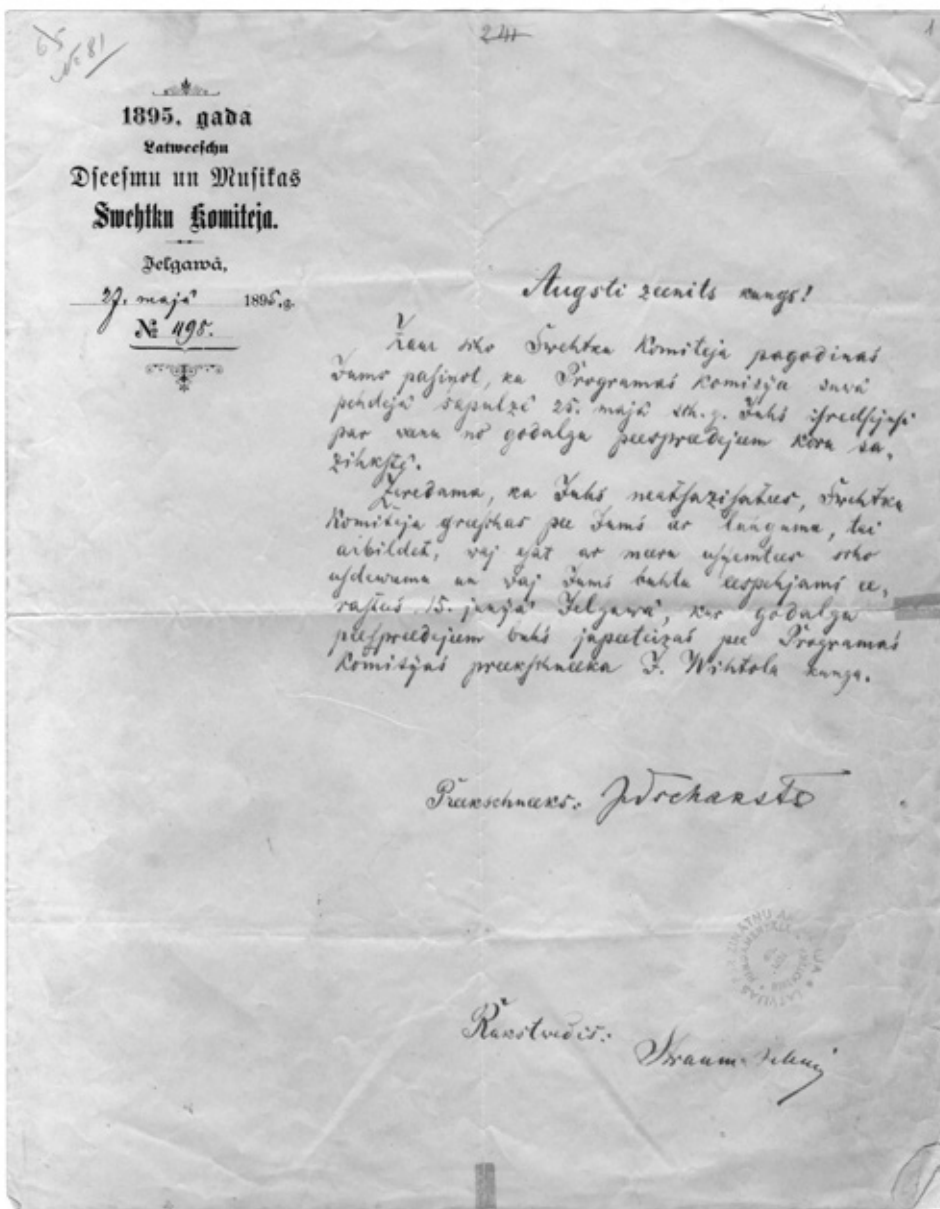 65
№ 81
241
1
1895. gada
Latweeschu
Dseesmu un Musikas
Swehtku Komiteja.
Jelgawâ,
27. majâ 1895. g.
№ 495.
Augsti zeenits kungs!
Zaur scho Swehtku Komiteja pagodinas
Jums pasiņot, ka Programas komisija sawâ
pehdejâ sapulzê 25. majâ sch. g. Juhs isredsejusi
par weenu no godalgu peespreedejeem koru sa-
zihkstê.
Zeredama, ka Juhs neatsazisatees, Swehtku
Komiteja greeschas pee Jums ar luhgumu, tai
atbildet, waj esat ar meeru usņemtees scho
usdewumu un waj Jums buhtu eespehjams ee-
rastees 15. junijâ Jelgawâ, kur godalgu
peespreedejeem buhs japeeteizas pee Programas
komisijas preekschneeka J. Wihtola kunga.
Preekschneeks: J Tschakste
Rakstwedis:
LATVIJAS